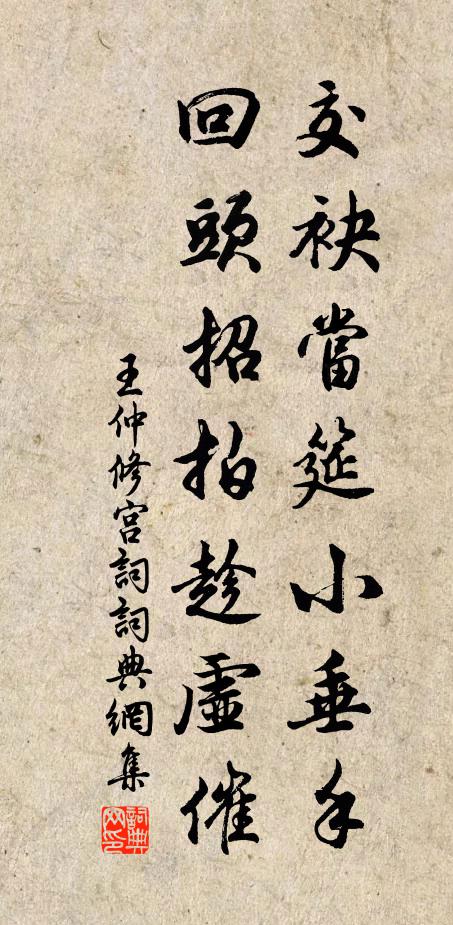 交袂當筵小垂手
回頭招拍趁虛催
王仲修宮詞詞典網集
詞典網印